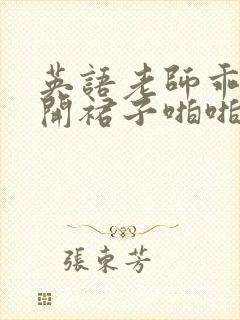 英語老師乖
開裙子啪啪
張東芳